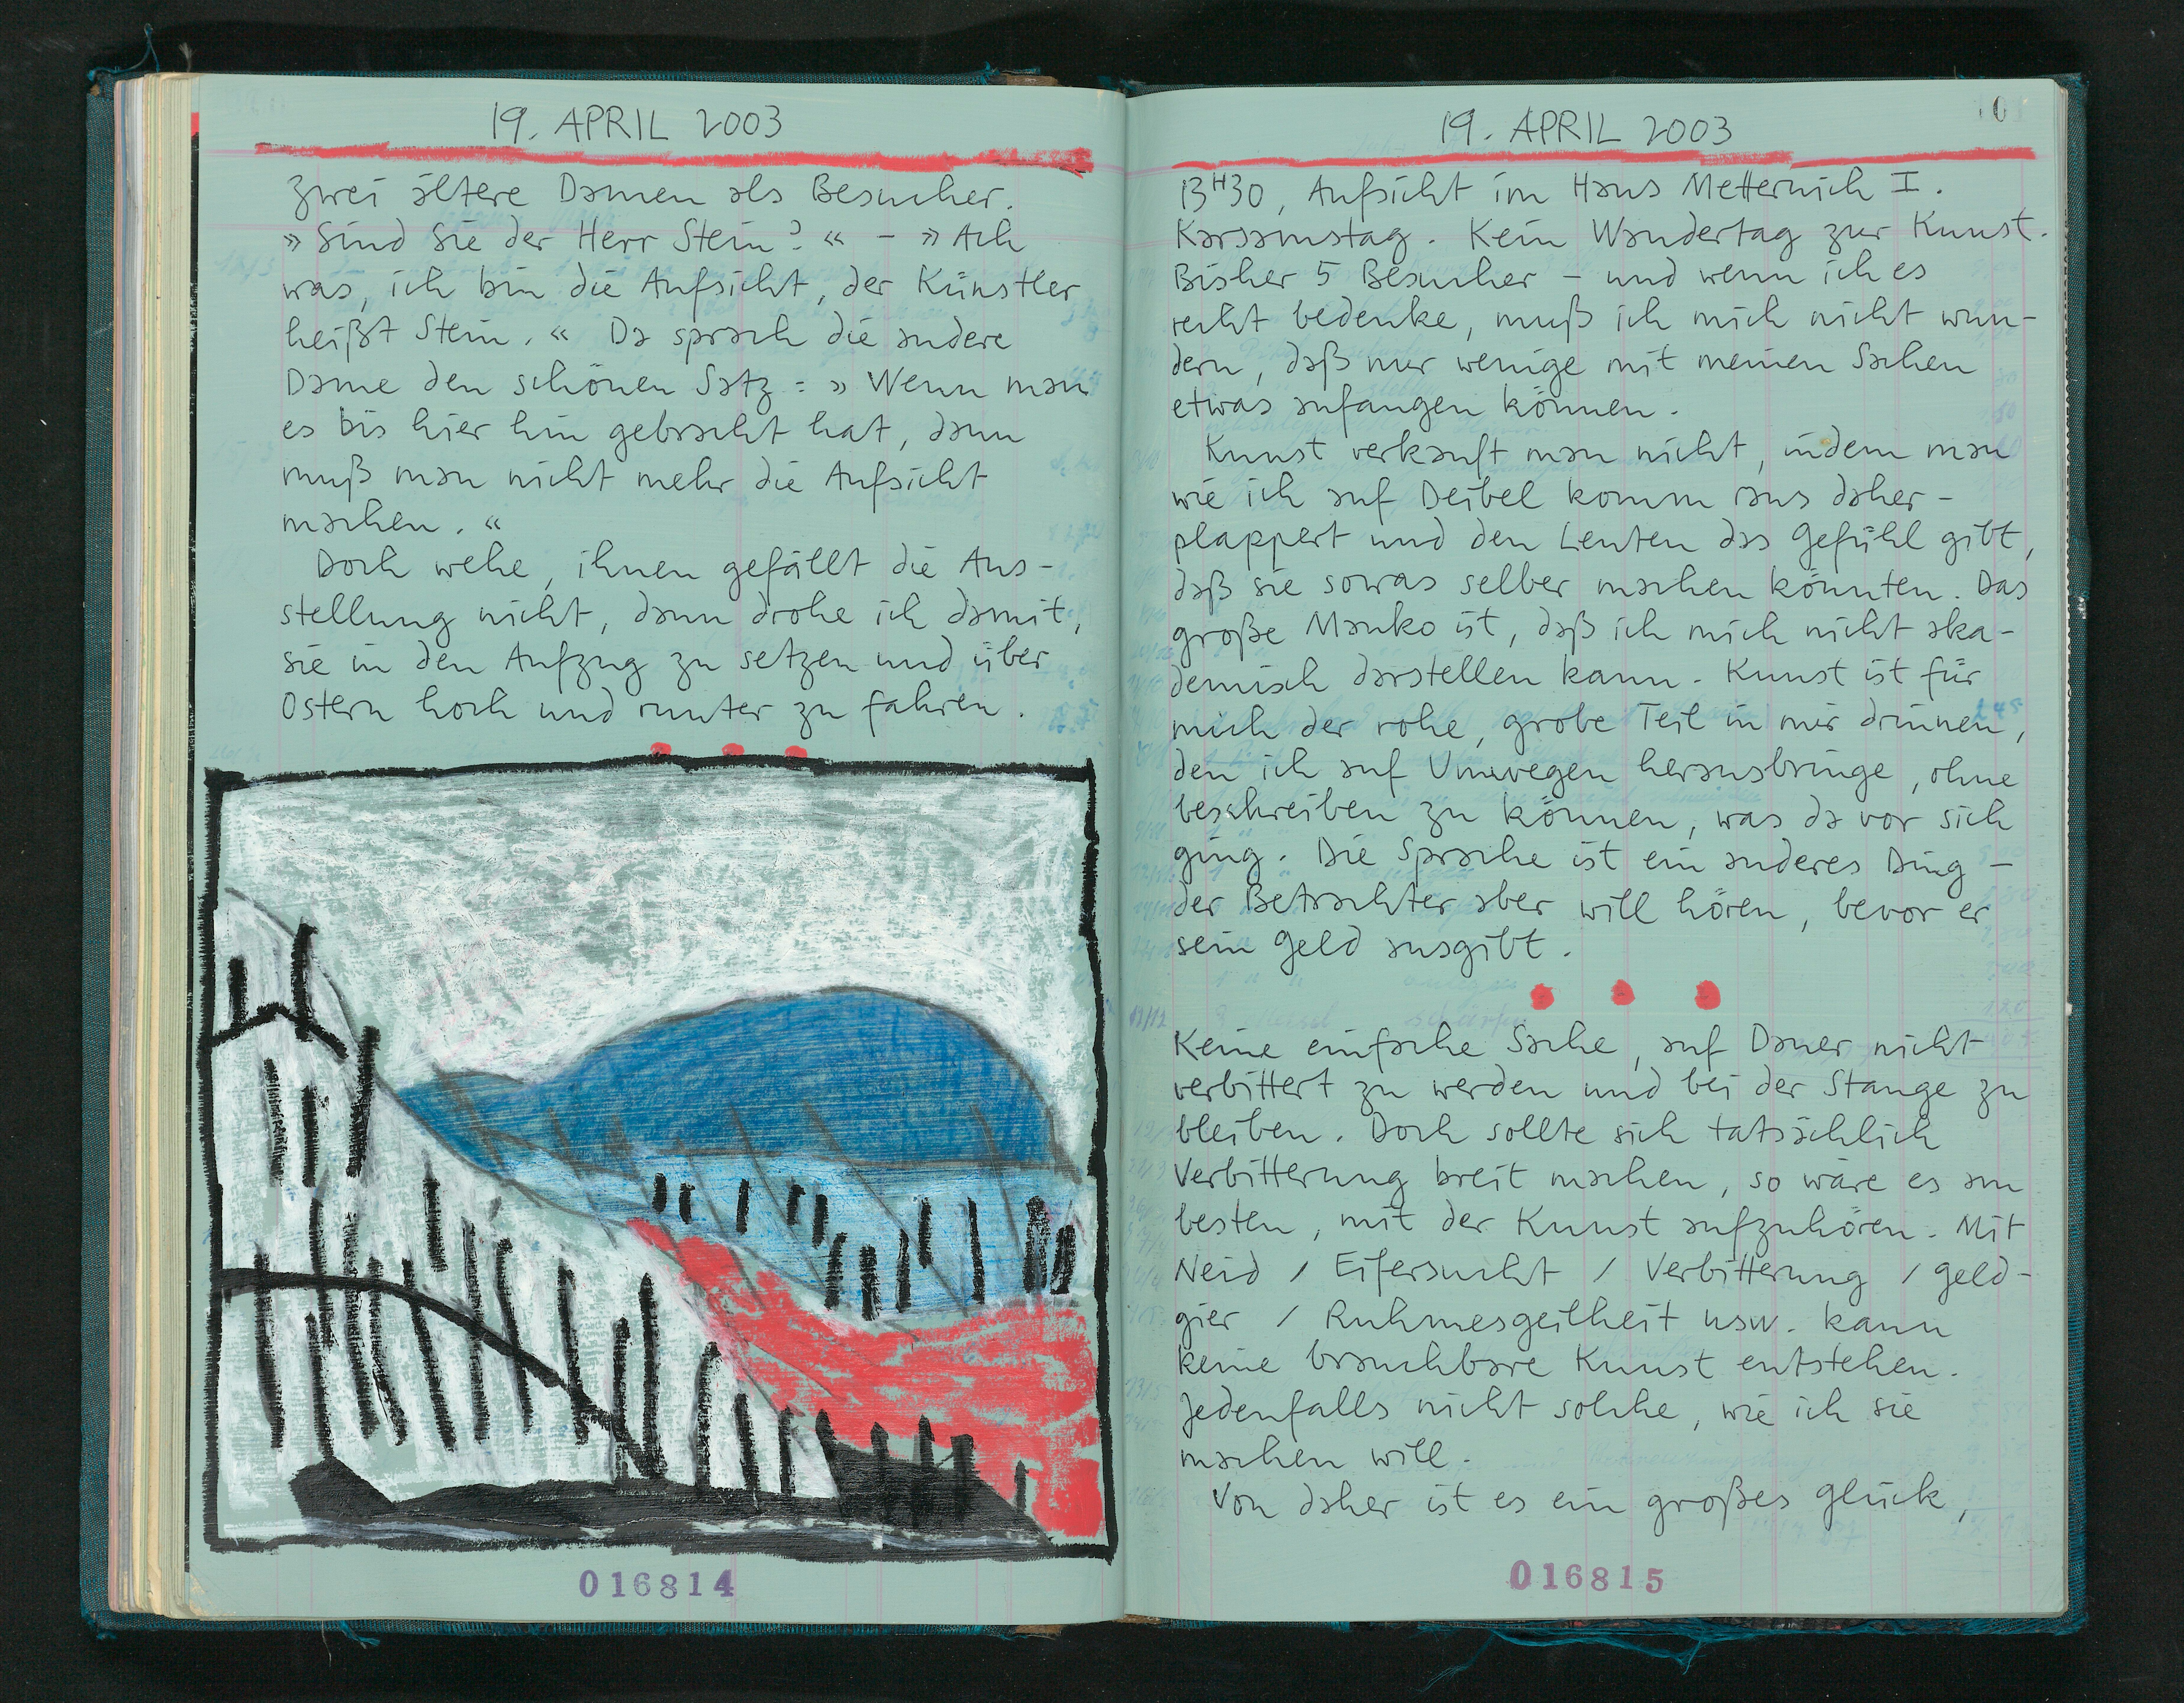 19. APRIL 2003
zwei ältere Damen als Besucher.
» Sind sie der Herr Stein? « – » Ach
was, ich bin die Aufsicht, der Künstler
heißt Stein. « Da sprach die andere
Dame den schönen Satz: » Wenn man
es bis hier hin gebracht hat, dann
muß man nicht mehr die Aufsicht
machen. «
Doch wehe, ihnen gefällt die Aus-
stellung nicht, dann drohe ich damit,
sie in den Aufzug zu setzen und über
Ostern hoch und runter zu fahren.
016814
19. APRIL 2003
13H30, Aufsicht im Haus Metternich I.
Karsamstag. Kein Wandertag zur Kunst.
Bisher 5 Besucher – und wenn ich es
recht bedenke, muß ich mich nicht wun-
dern, daß nur wenige mit meinen Sachen
etwas anfangen können.
Kunst verkauft man nicht, indem man
wie ich auf Deibel komm raus daher-
plappert und den Leuten das Gefühl gibt,
daß sie sowas selber machen könnten. Das
große Manko ist, daß ich mich nicht aka-
demisch darstellen kann. Kunst ist für
mich der rohe, grobe Teil in mir drinnen,
den ich auf Umwegen herausbringe, ohne
beschreiben zu können, was da vor sich
ging. Die Sprache ist ein anderes Ding –
der Betrachter aber will hören, bevor er
sein Geld ausgibt.
Keine einfache Sache, auf Dauer nicht
verbittert zu werden und bei der Stange zu
bleiben. Doch sollte sich tatsächlich
Verbitterung breit machen, so wäre es am
besten, mit der Kunst aufzuhören. Mit
Neid / Eifersucht / Verbitterung / Geld-
gier / Ruhmesgeilheit usw. kann
keine brauchbare Kunst entstehen.
Jedenfalls nicht solche, wie ich sie
machen will.
Von daher ist es ein großes Glück,
016815